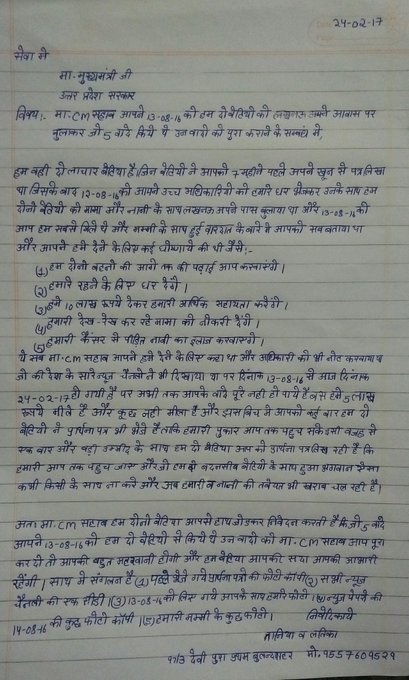 24-02-17
सेवा में
मा. मुख्यमंत्री जी
उत्तर प्रदेश सरकार
विषय:- मा. CM साहब आपने 13-08-16 को हम दो बेटियों को लखनऊ अपने आवास पर
बुलाकर जो 5 वादे किये थे उन वादों को पूरा कराने के सम्बंध में,
हम वही दो लाचार बेटियां है। जिन बेटियों ने आपको 7 महीने पहले अपने खून से पत्र लिखा
था जिसके बाद 12-08-16 को आपने उच्च अधिकारियों को हमारे घर भेजकर उनके साथ हम
दोनों बेटियों को मामा और नानी के साथ लखनऊ अपने पास बुलाया था और 13-08-16 को
आप हम सबसे मिले थे और मम्मी के साथ हुई वारदात के बारे में आपको सब बताया था
और आपने हमे देने के लिए कई घोषणाये की थी जैसे:-
(1) हम दोनों बहनों की आगे तक की पढ़ाई आप करवाएंगे।
(2) हमारे रहने के लिए घर देंगे।
(3) हमे 10 लाख रुपये देकर हमारी आर्थिक सहायता करेंगे।
(4) हमारी देख-रेख कर रहे मामा को नौकरी देंगे।
(5) हमारी कैंसर से पीड़ित नानी का इलाज करवाएंगे।
ये सब मा. CM साहब आपने हमे देने के लिए कहा था और अधिकारी को भी नोट करवाया था
जो की देश के सारे न्यूज चैनलों ने भी दिखाया था पर दिनांक 13-08-16 से आज दिनांक
24-02-17 हो गयी है पर अभी तक आपके वादे पूरे नही हो पाये है बस हमे 5 लाख
रूपये मीले है और कुछ नही मीला है और इस बिच मे आपको कई बार हम दो
बेटियो ने प्रार्थना पत्र भी भेजे है ताकि हमारी पुकार आप तक पहुच सके इसी वजह से
एक बार और बड़ी उम्मीद के साथ हम दो बेटिया आप को प्रार्थना पत्र लिख रही है कि
हमारी आप तक पहुच जाए और जो हम दो बदनसीब बेटियो के साथ हुआ भगवान ऐसा
कभी किसी के साथ ना करे और अब हमारी नानी की तबीयत भी खराब चल रही है।
अतः मा. CM साहब हम दोनो बेटिया आपसे हाथ जोडकर निवेदन करती है कि जो 5 वादे
आपने 13-08-16 को हम दो बेटियों से किये थे उन वादो को मा. CM साहब आप पूरा
कर दो तो आपकी बहुत महरबानी होगी और हम बेटिया आपकी सदा आपकी आभारी
रहेंगी। साथ में संलगन है (1) पहले भेजे गये प्रार्थना पत्रों की फोटो कॉपी (2) सभी न्यूज
चैनलो की एक सीडी। (3) 13-08-16 को लिए गये आपके साथ हमारे फोटो। (4) न्यूज पेपरों की
14-08-16 की कुछ फोटो कॉपी। (5) हमारी मम्मी के कुछ फोटो। निवेदिकाये
तानिया व लतिका
देवी पुरा प्रथम बुलन्दशहर मो. 9557609524